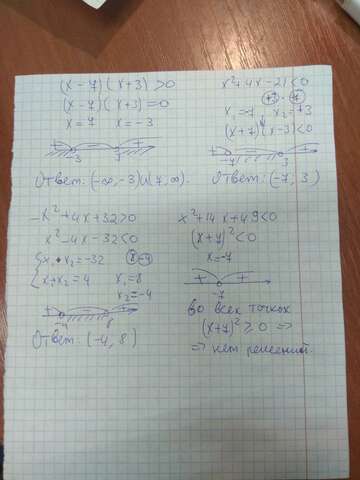 (x-7)(x+3)>0
(x-7)(x+3)=0
x=7 x=-3
+ - +
-3 7
Ответ: (-∞,-3)∪(7,∞).
x²+4x-21<0
+3 · 7
x₁=-7 x₂=+3
(x+7)(x-3)<0
+ - +
-7 3
Ответ: (-7, 3)
-x²+4x+32>0
x²-4x-32<0
x₁·x₂=-32
x₁+x₂=4 x₁=8
x₂=-4
+ - +
-4 8
Ответ: (-4, 8)
x²+14x+49<0
(x+7)²<0
x=-7
+ +
-7
Во всех точках
(x+7)²≥0 =>
=> нет решений.